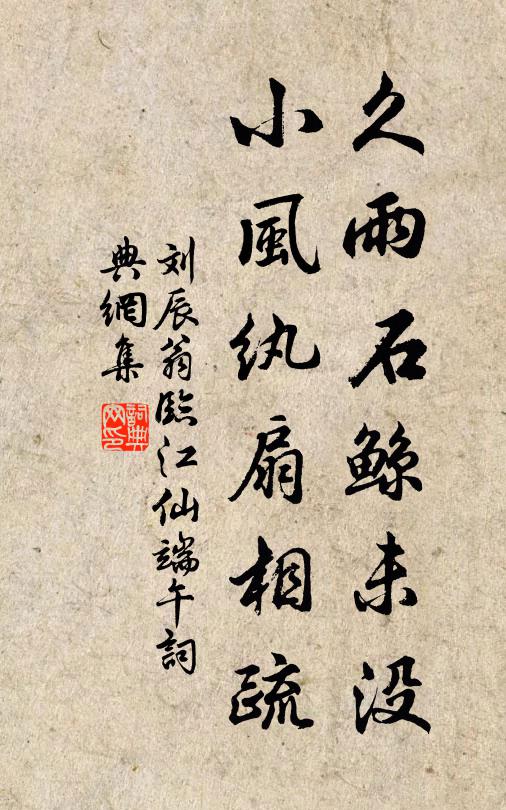 久雨石鲸未没
小風纨扇相疏
刘辰翁臨江仙端午詞
典網集
詞典網印